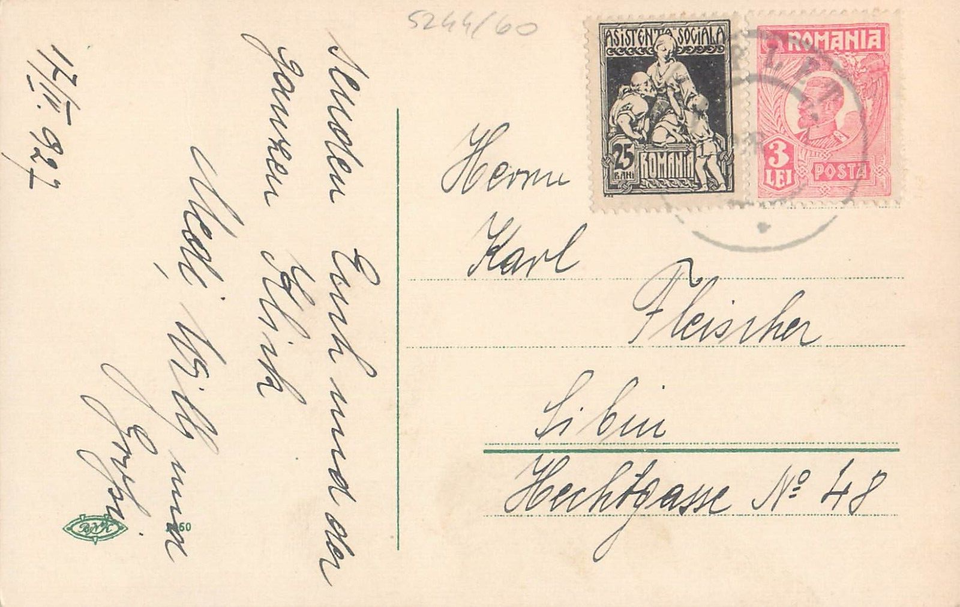 5244/60
ASISTENȚA SOCIALA
25
BANI
ROMANIA
ROMANIA
3
LEI
POSTA
Herrn
Karl
Fleischer
Sibiu
Hechtgasse № 48
senden Euch und der
ganzen
Medi, Willy und
17/IV. 927